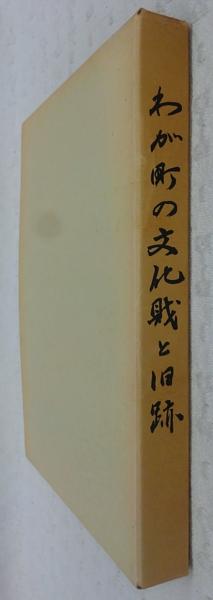 わが町の文化財と旧跡